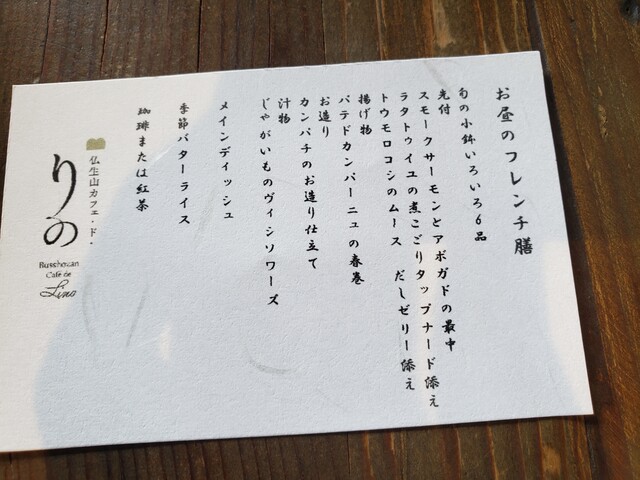 お昼のフレンチ膳
旬の小鉢いろいろ6品
先付
スモークサーモンとアボガドの最中
ラタトゥイユの煮こごりタップナード添え
トウモロコシのムース だしゼリー添え
揚げ物
パテドカンパーニュの春巻
お造り
カンパチのお造り仕立て
汁物
じゃがいものヴィシソワーズ
メインディッシュ
季節バターライス
珈琲または紅茶
仏生山カフェ・ド・
りの
Busshozan
Café de
Lino